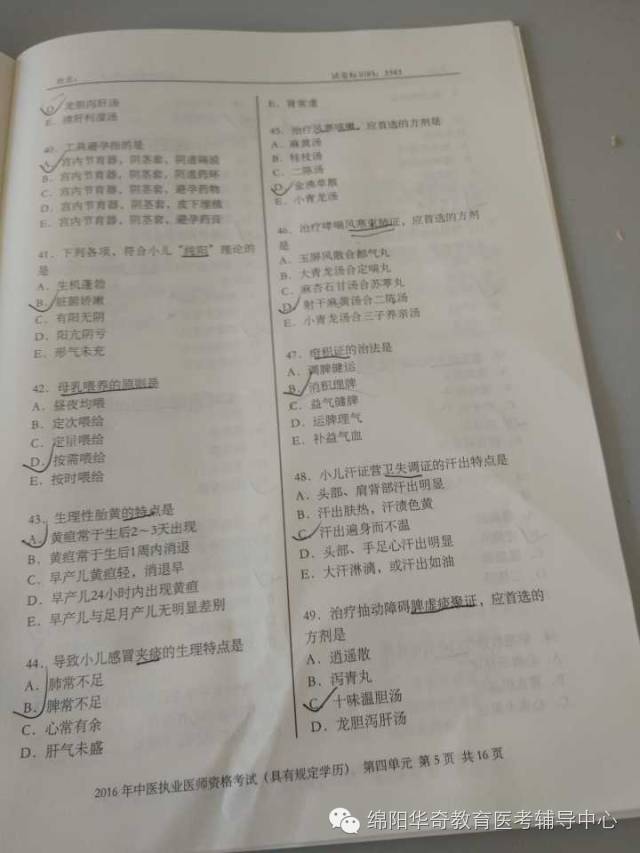 姓名：
试卷标识码：3583
D. 龙胆泻肝汤
E. 清肝利湿汤
40. 工具避孕指的是
A. 宫内节育器，阴茎套，阴道隔膜
B. 宫内节育器，阴茎套，阴道药环
C. 宫内节育器，阴茎套，避孕药物
D. 宫内节育器，阴茎套，皮下埋植
E. 宫内节育器，阴茎套，避孕药膏
41. 下列各项，符合小儿“纯阳”理论的
是
A. 生机蓬勃
B. 脏腑娇嫩
C. 有阳无阴
D. 阳亢阴亏
E. 形气未充
42. 母乳喂养的原则是
A. 昼夜均喂
B. 定次喂给
C. 定量喂给
D. 按需喂给
E. 按时喂给
43. 生理性胎黄的特点是
A. 黄疸常于生后2～3天出现
B. 黄疸常于生后1周内消退
C. 早产儿黄疸轻，消退早
D. 早产儿24小时内出现黄疸
E. 早产儿与足月产儿无明显差别
44. 导致小儿感冒夹痰的生理特点是
A. 肺常不足
B. 脾常不足
C. 心常有余
D. 肝气未盛
E. 肾常虚
45. 治疗风寒咳嗽，应首选的方剂是
A. 麻黄汤
B. 桂枝汤
C. 二陈汤
D. 金沸草散
E. 小青龙汤
46. 治疗哮喘风寒束肺证，应首选的方剂
是
A. 玉屏风散合都气丸
B. 大青龙汤合定喘丸
C. 麻杏石甘汤合苏葶丸
D. 射干麻黄汤合二陈汤
E. 小青龙汤合三子养亲汤
47. 疳积证的治法是
A. 调脾健运
B. 消积理脾
C. 益气健脾
D. 运脾理气
E. 补益气血
48. 小儿汗证营卫失调证的汗出特点是
A. 头部、肩背部汗出明显
B. 汗出肤热，汗渍色黄
C. 汗出遍身而不温
D. 头部、手足心汗出明显
E. 大汗淋漓，或汗出如油
49. 治疗抽动障碍脾虚痰聚证，应首选的
方剂是
A. 逍遥散
B. 泻青丸
C. 十味温胆汤
D. 龙胆泻肝汤
2016 年中医执业医师资格考试（具有规定学历） 第四单元 第 5 页 共 16 页
绵阳华奇教育医考辅导中心